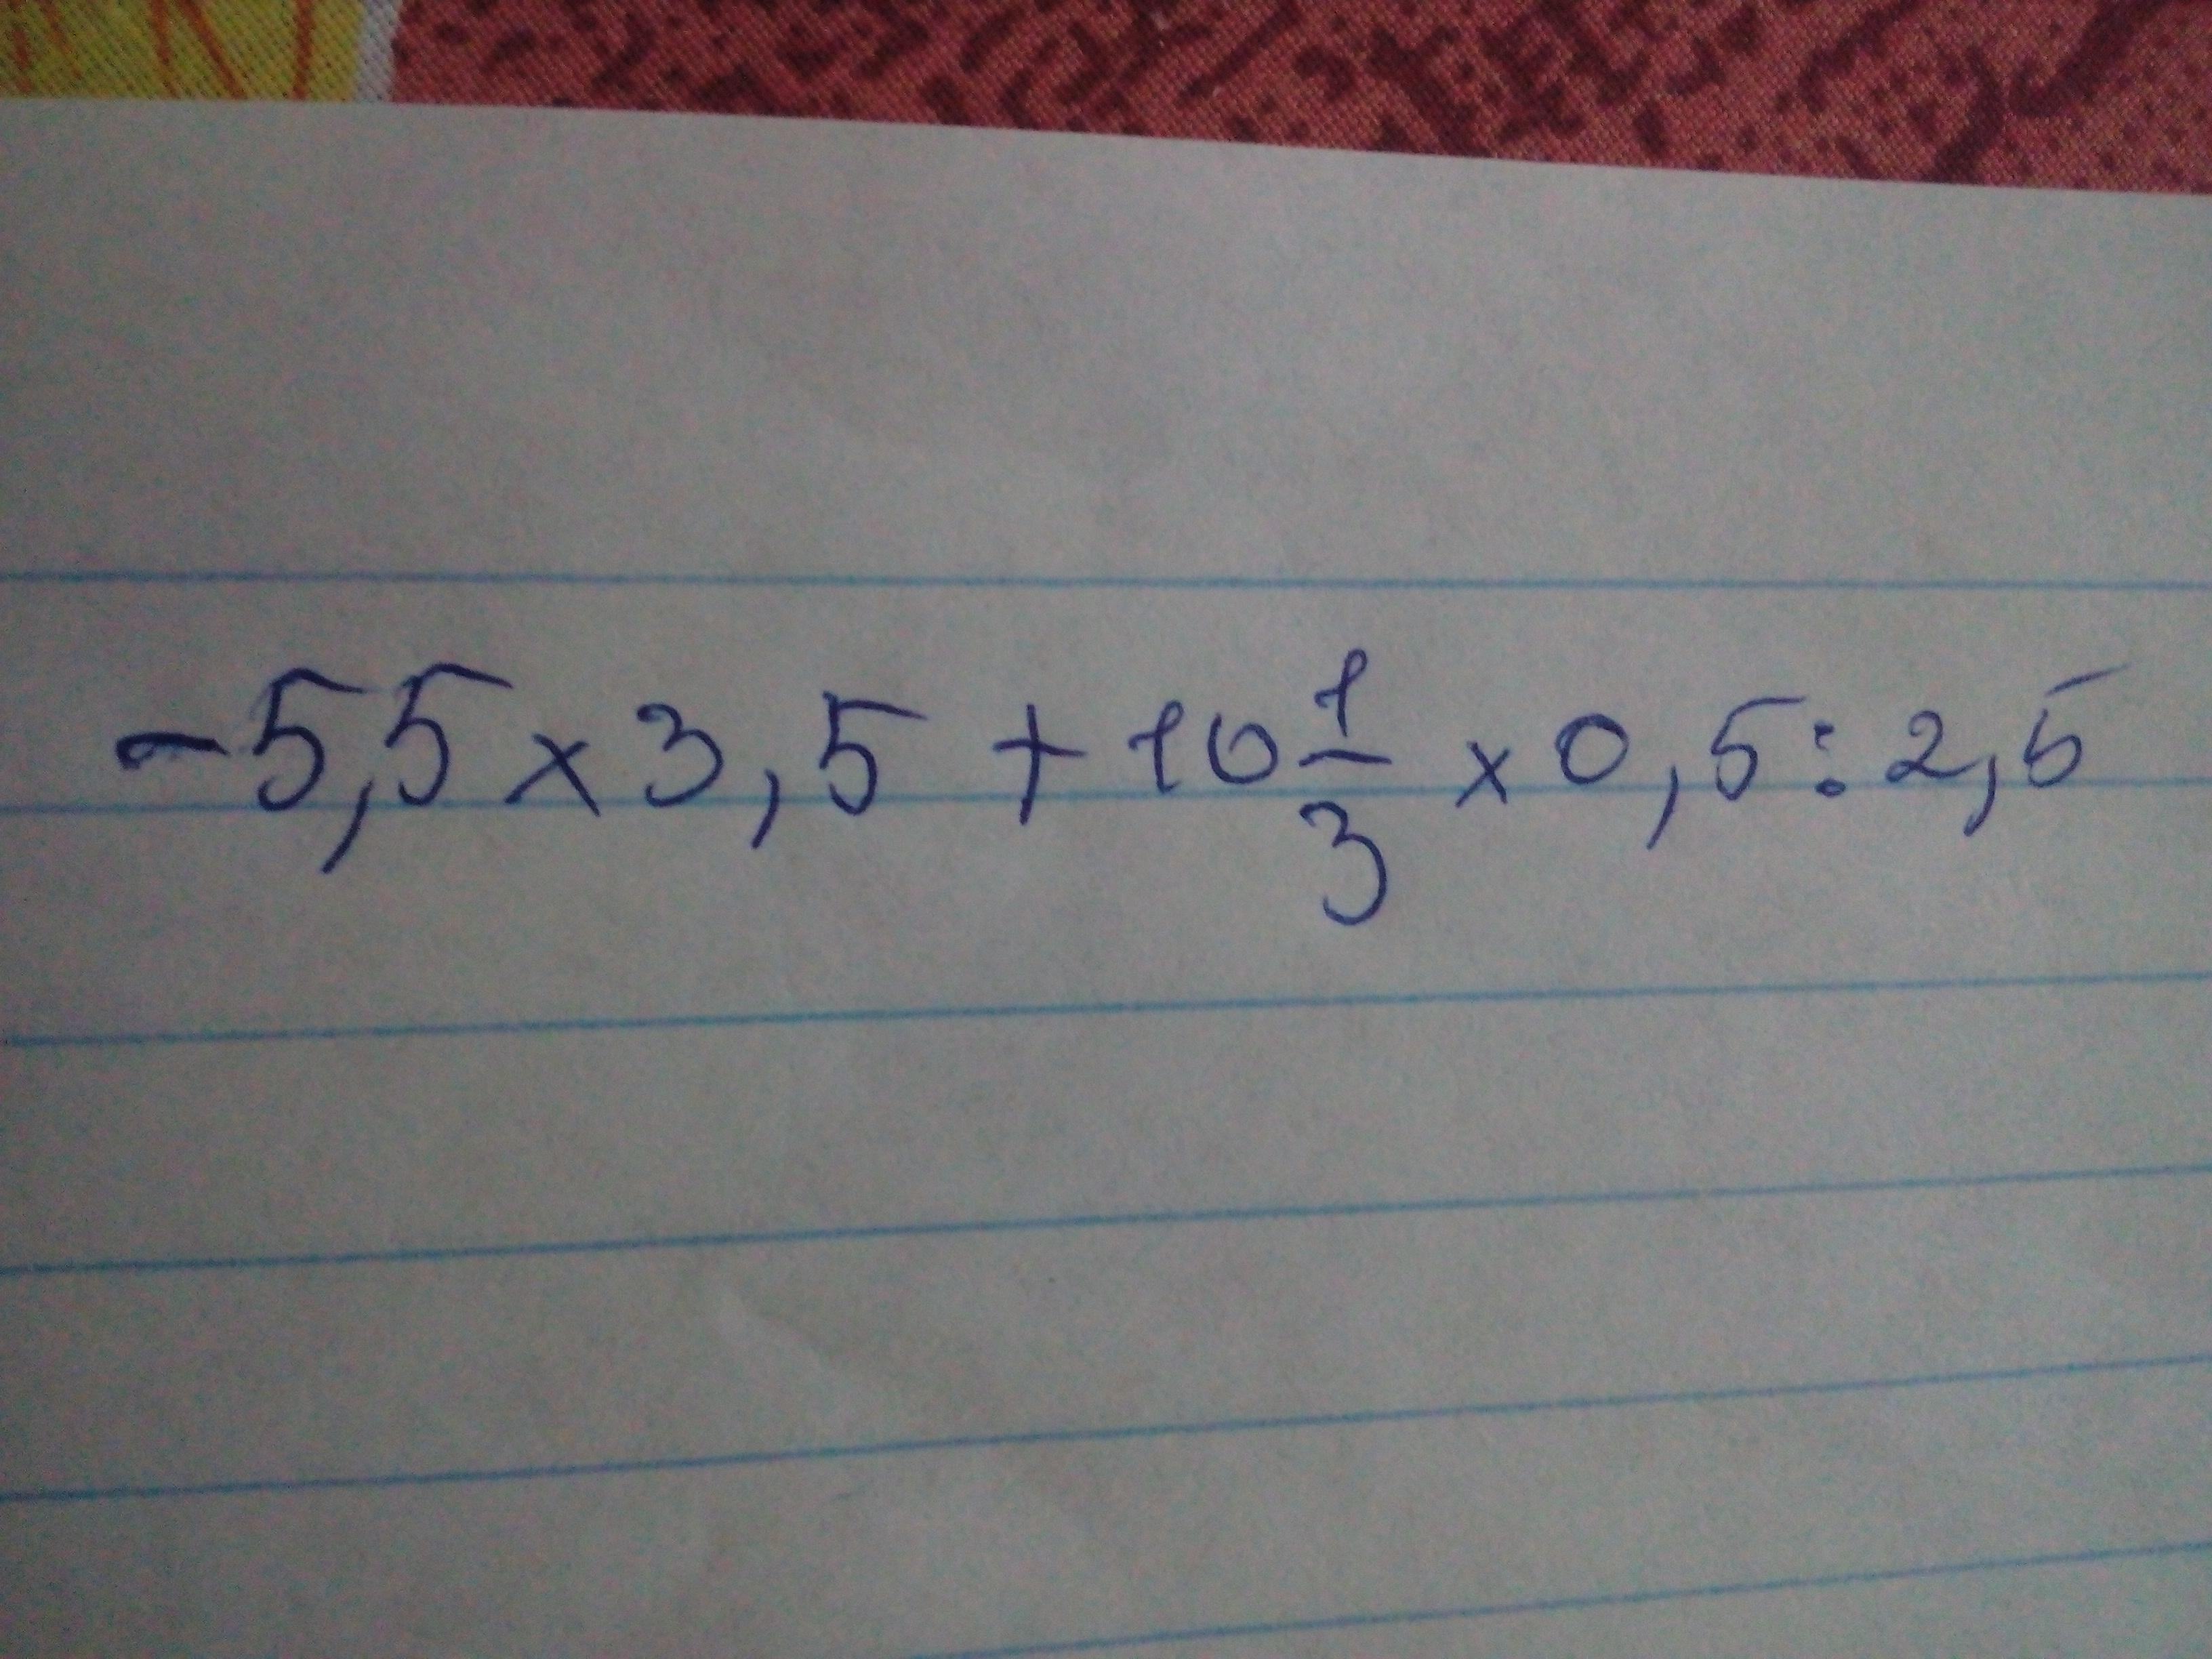 -5,5 × 3,5 + 10 1/3 × 0,5 : 2,5